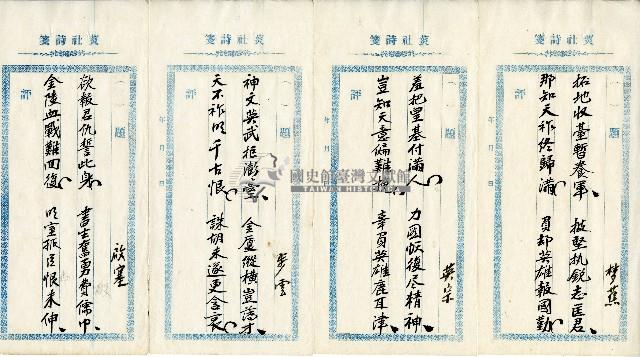 箋詩社蓂
題
評
年 月 日
拓地收臺暫養軍 披堅執銳志匡君
那知天祚終歸滿 員却英雄報國勤
夢蕉
箋詩社蓂
題
評
年 月 日
羞把皇基付滿人 力圖恢復尽精神
豈知天意偏難挽 辜負英雄鹿耳津
英宗
箋詩社蓂
題
評
神文英武拒澎臺 金厦縱橫豈識才
天不祚明千古恨 誅胡未遂更含哀
步雲
箋詩社蓂
題
評
年 月 日
欲報君仇誓此身 書生奮勇費儒巾
金陵血戰難回復 明室孤臣恨未伸
啟塞
國史館臺灣文獻館
TAIWAN HISTORICA